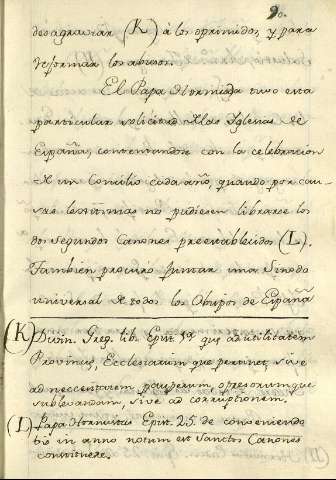 90.
desagraviar (K) à los oprimidos, y para
reformar los abusos.
El Papa Hormisda tuvo esta
particular solicitud de las Iglesias de
España, contentandose con la celebracion
de un Concilio cada año, quando por cau-
sas lexitimas no pudiesen librarse los
dos segundos Canones preestablecidos (L).
Tambien procuró juntar unos Sinodo
universal de todos los Obispos de España
(K) Divin. Greg. lib. Epist. 1ª que ad utilitatem
Provincie, Ecclesiarum que perviner, sive
ad neccesitatem pauperum, opresorumque
sublevandam, sive ad corruptionem.
(L) Papa Hormisdas Epist. 25. de conveniendo
bis in anno notum est Sanctos Canones
constituere.